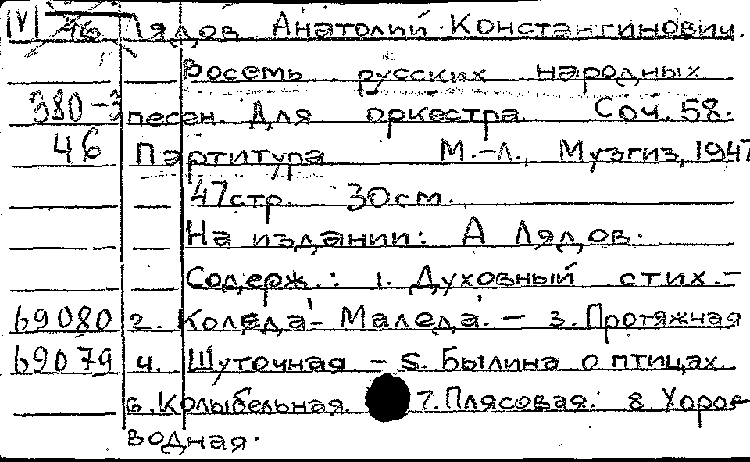 IY 46 Лядов Анатолий Константинович.
Восемь русских народных
380-3 песен. Для оркестра Соч. 58.
46 Партитура М.-Л., Музгиз, 1947
47стр. 30см.
На издании: А Лядов.
Содерж.: 1. Духовный стих.-
69080 2. Коледа-Маледа. - 3. Протяжная
69079 4. Шуточная - 5. Былина о птицах
6. Колыбельная. 7. Плясовая. 8 Хоро-
водная.